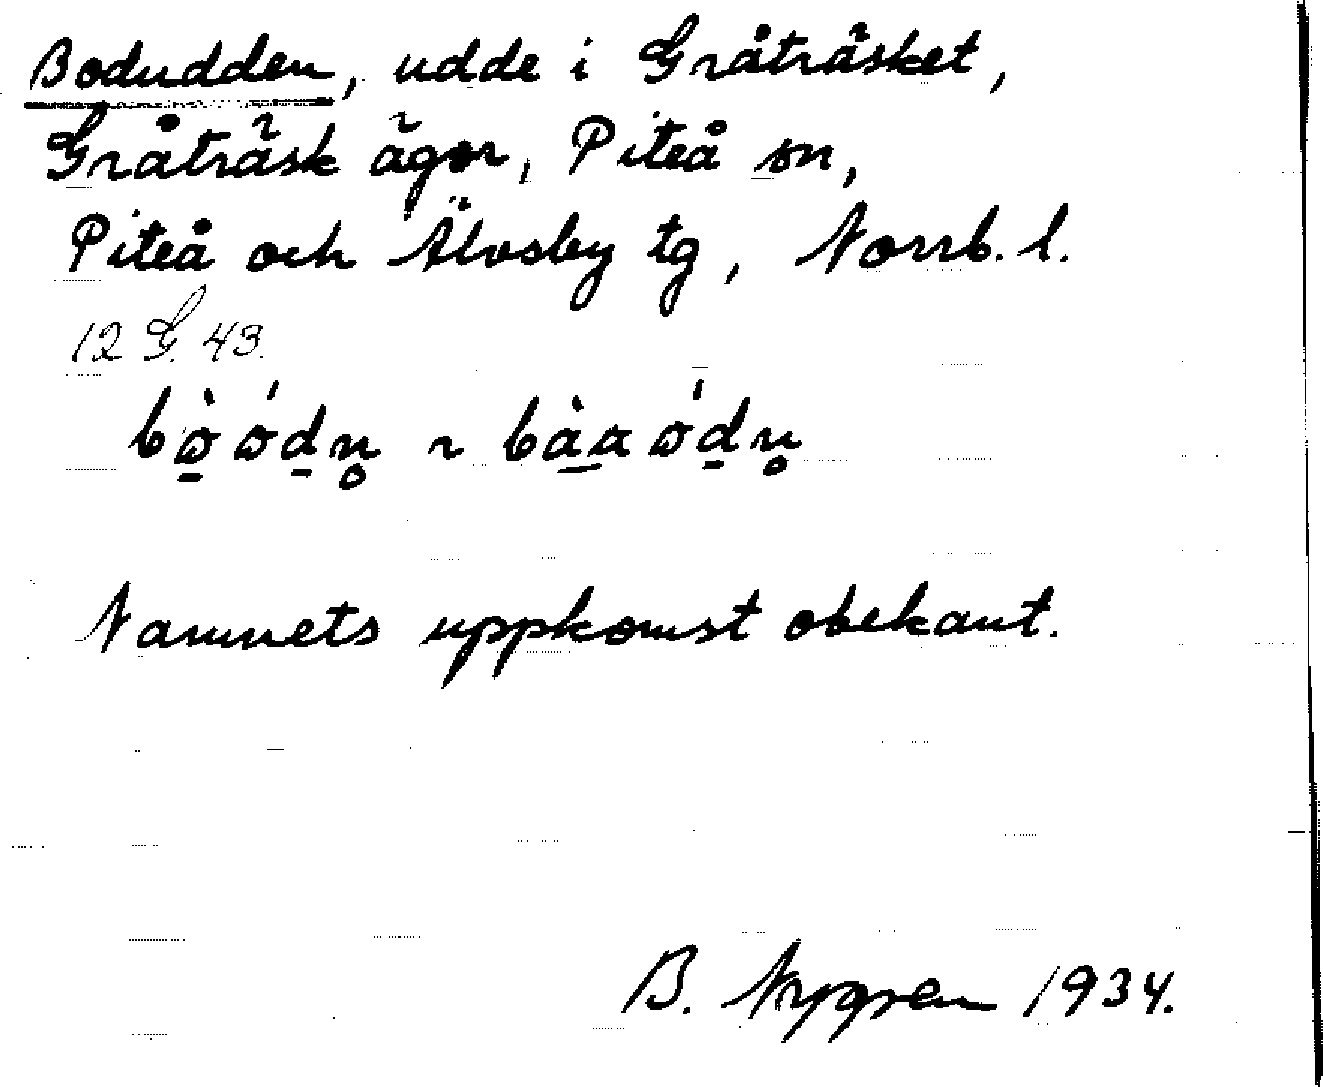 Bodudden, udde i Gråträsket,
Gråträsk ägor, Piteå sn,
Piteå och Älvsby tg, Norrb. l.
12 G. 43.
Namnets uppkomst obekant.
B. Nygren 1934.